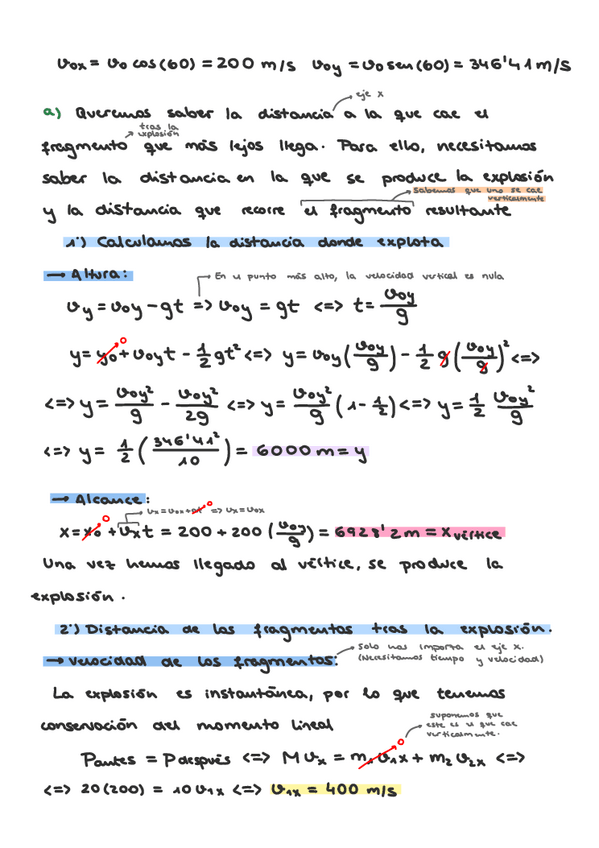 v₀ₓ = v₀ cos(60) = 200 m/s v₀y = v₀ sen(60) = 346'41 m/s
eje x
a) Queremos saber la distancia a la que cae el
tras la explosión
fragmento que más lejos llega. Para ello, necesitamos
saber la distancia en la que se produce la explosión
sabemos que uno se cae verticalmente
y la distancia que recorre el fragmento resultante
1º) Calculamos la distancia donde explota
→ Altura:
En el punto más alto, la velocidad vertical es nula
vy = v₀y - gt => v₀y = gt <=> t = v₀y/g
y = y₀ + v₀yt - 1/2 gt² <=> y = v₀y (v₀y/g) - 1/2 g (v₀y/g)² <=>
<=> y = v₀y²/g - v₀y²/2g <=> y = v₀y²/g (1 - 1/2) <=> y = 1/2 v₀y²/g
<=> y = 1/2 (346'41²/10) = 6000 m = y
→ Alcance:
vₓ = v₀ₓ + at => vₓ = v₀ₓ
x = x₀ + vₓt = 200 + 200 (v₀y/g) = 6928'2 m = x vértice
Una vez hemos llegado al vértice, se produce la
explosión.
2º) Distancia de los fragmentos tras la explosión.
→ Velocidad de los fragmentos:
Solo nos importa el eje x.
(Necesitamos tiempo y velocidad)
La explosión es instantánea, por lo que tenemos
conservación del momento lineal
suponemos que
este es el que cae
verticalmente.
Pantes = Pdespués <=> M vₓ = m₁ v₁ₓ + m₂ v₂ₓ <=>
<=> 20(200) = 10 v₁ₓ <=> v₁ₓ = 400 m/s